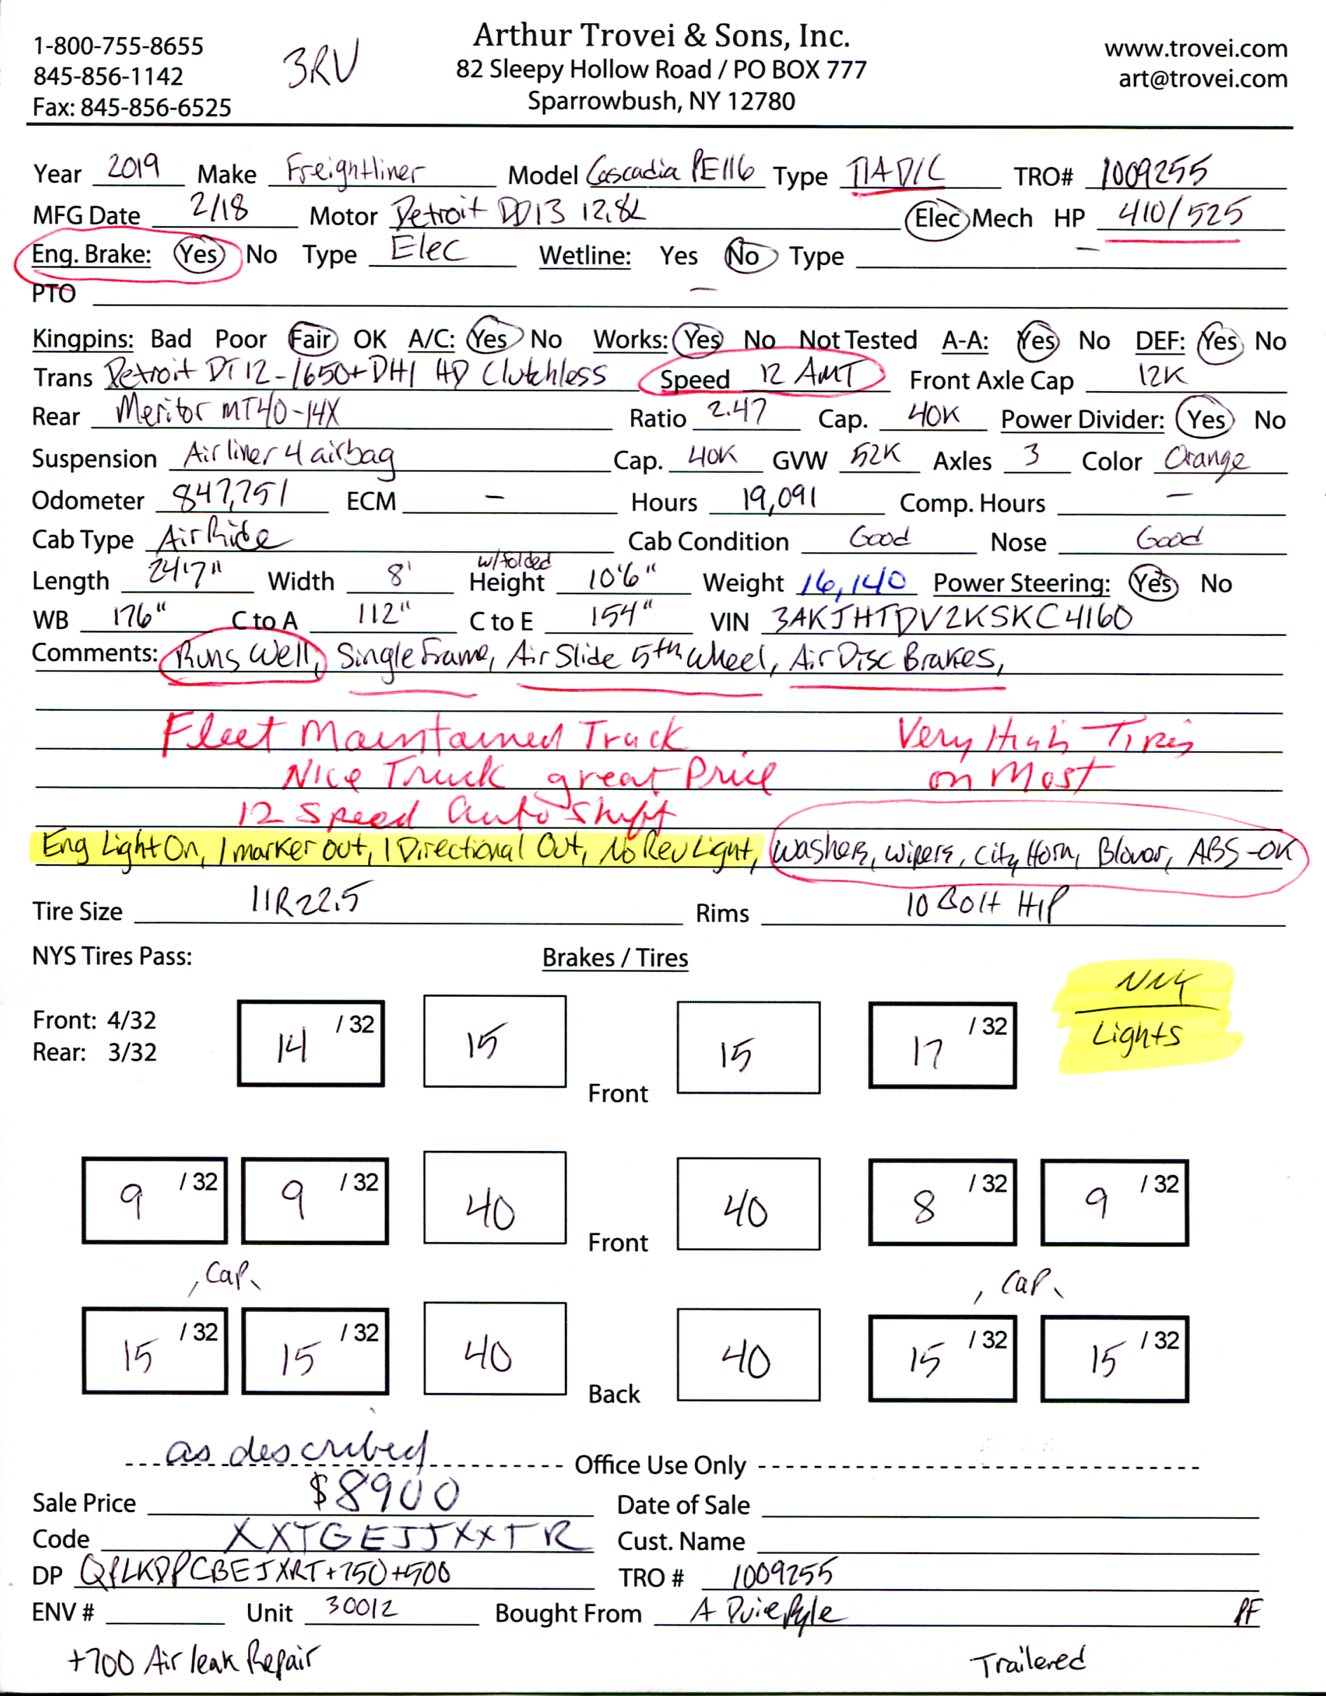 Arthur Trovei & Sons, Inc.
1-800-755-8655 3RV 82 Sleepy Hollow Road / PO BOX 777 www.trovei.com
845-856-1142 Sparrowbush, NY 12780 art@trovei.com
Fax: 845-856-6525
Year 2019 Make Freightliner Model Cascadia PE116 Type TIAD/C TRO# 1009255
MFG Date 2/18 Motor Detroit DD13 12.8L Elec Mech HP 410/525
Eng. Brake: Yes No Type Elec Wetline: Yes No Type —
PTO —
Kingpins: Bad Poor Fair OK A/C: Yes No Works: Yes No Not Tested A-A: Yes No DEF: Yes No
Trans Detroit DT12-1650+DH1 HD Clutchless Speed 12 AMT Front Axle Cap 12K
Rear Meritor MT40-14X Ratio 2.47 Cap. 40K Power Divider: Yes No
Suspension Airliner 4 airbag Cap. 40K GVW 52K Axles 3 Color Orange
Odometer 847,751 ECM — Hours 19,091 Comp. Hours —
Cab Type Air Ride Cab Condition Good Nose Good
Length 24'7" Width 8' w/folded Height 10'6" Weight 16,140 Power Steering: Yes No
WB 176" C to A 112" C to E 154" VIN 3AKJHTDV2KSKC4160
Comments: Runs Well, Single Frame, Air Slide 5th Wheel, Air Disc Brakes,
Fleet Maintained Truck Very High Tires
Nice Truck great Price on Most
12 Speed Auto Shift
Eng Light On, 1 marker out, 1 Directional Out, No Rev Light, Washers, Wipers, City Horn, Blower, ABS-OK
Tire Size 11R22.5 Rims 10 Bolt H/P
NYS Tires Pass: Brakes / Tires
Front: 4/32 14 /32 15 15 17 /32
Rear: 3/32 Lights
Front
9 /32 9 /32 40 40 8 /32 9 /32
Front
, Cap. , Cap.
15 /32 15 /32 40 40 15 /32 15 /32
Back
as described Office Use Only
Sale Price $8900 Date of Sale
Code XXTGEJJXXTR Cust. Name
DP QPLKDPCBEJXRT+750+500 TRO # 1009255
ENV # Unit 30012 Bought From A Duie Pyle PF
+700 Air leak Repair Trailered